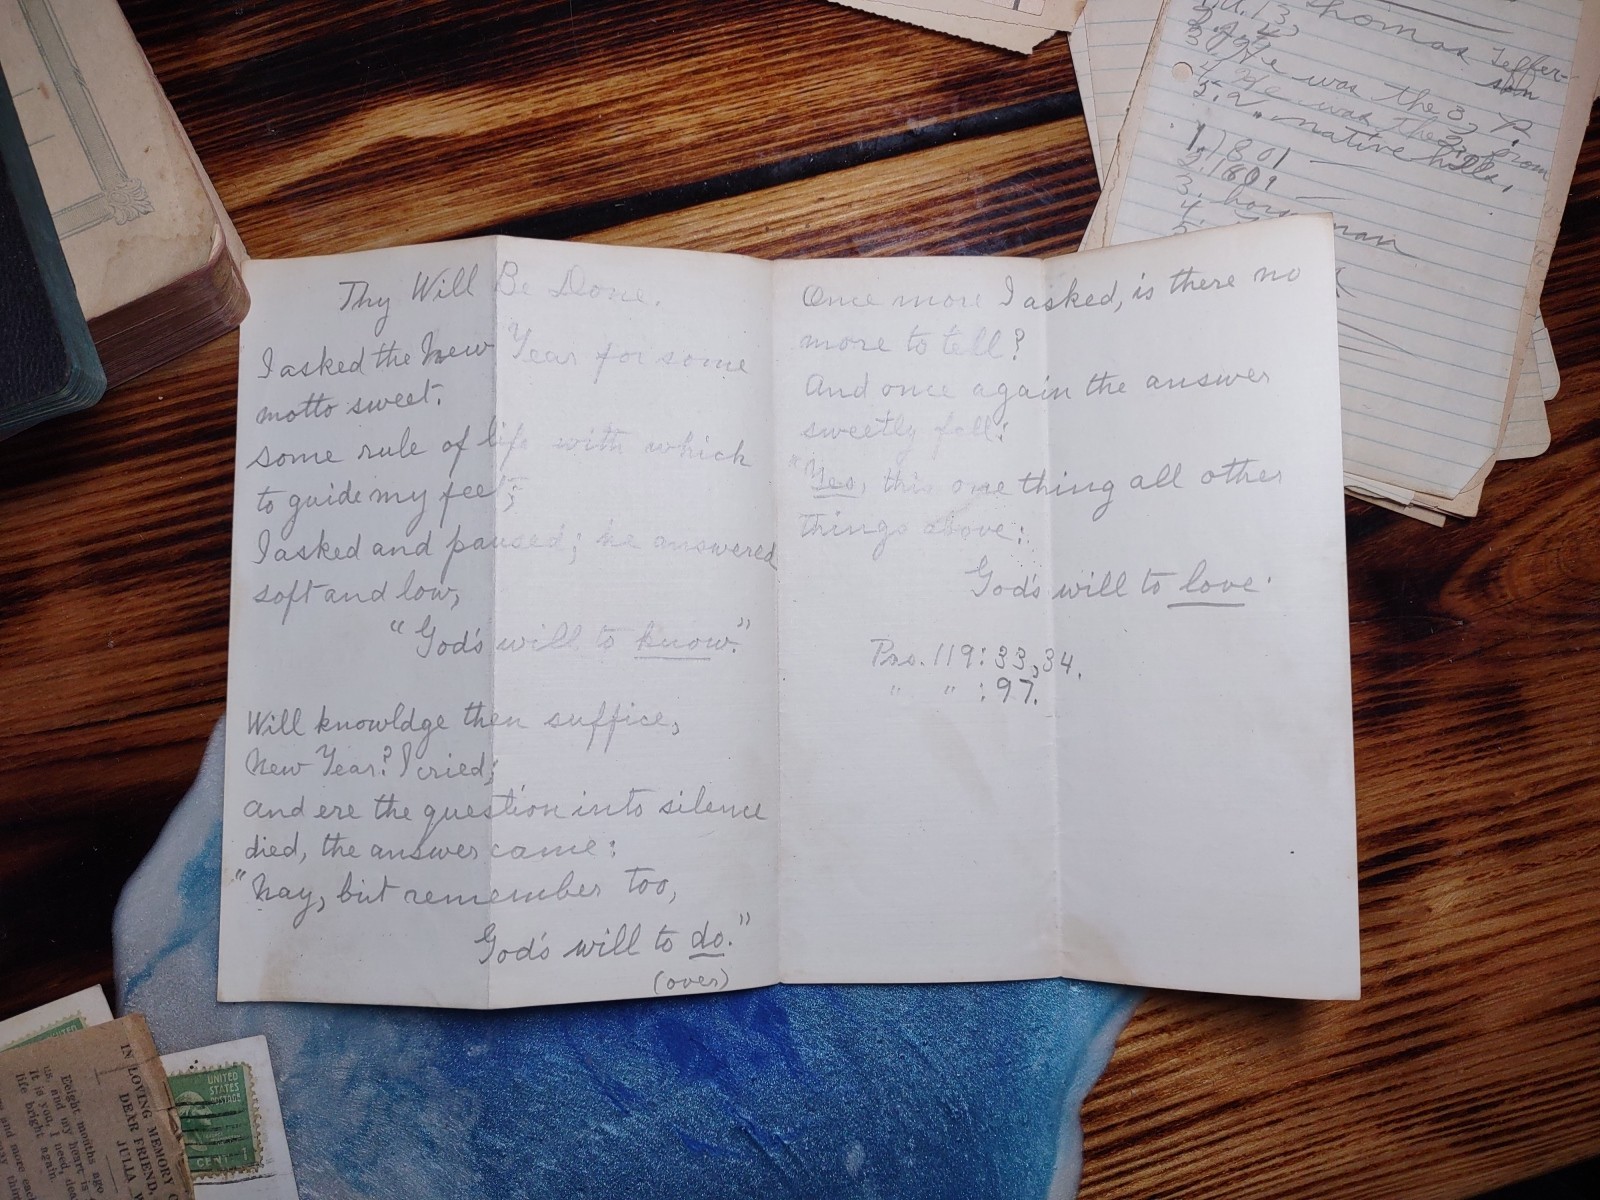 Thy Will Be Done.
I asked the New Year for some
motto sweet,
some rule of life with which
to guide my feet;
I asked and paused; he answered
soft and low,
"God's will to know."
Will knowldge then suffice,
New Year? I cried;
and ere the question into silence
died, the answer came:
"Nay, but remember too,
God's will to do."
(over)
Once more I asked, is there no
more to tell?
And once again the answer
sweetly fell:
"Yes, this one thing all other
things above:
God's will to love.
Psa. 119:33,34.
" " :97.
Thomas Jeffer-
son
3. He was the 3, P
4. He was the
5. " native
1. 1801
2. 1809
3.
4.
UNITED
STATES
POSTAGE
CENT
IN LOVING MEMORY
DEAR FRIEND,
JULIA
Eeight months ago
us, and my heart is
It is you, I need, dea
life bright again.
and more eac